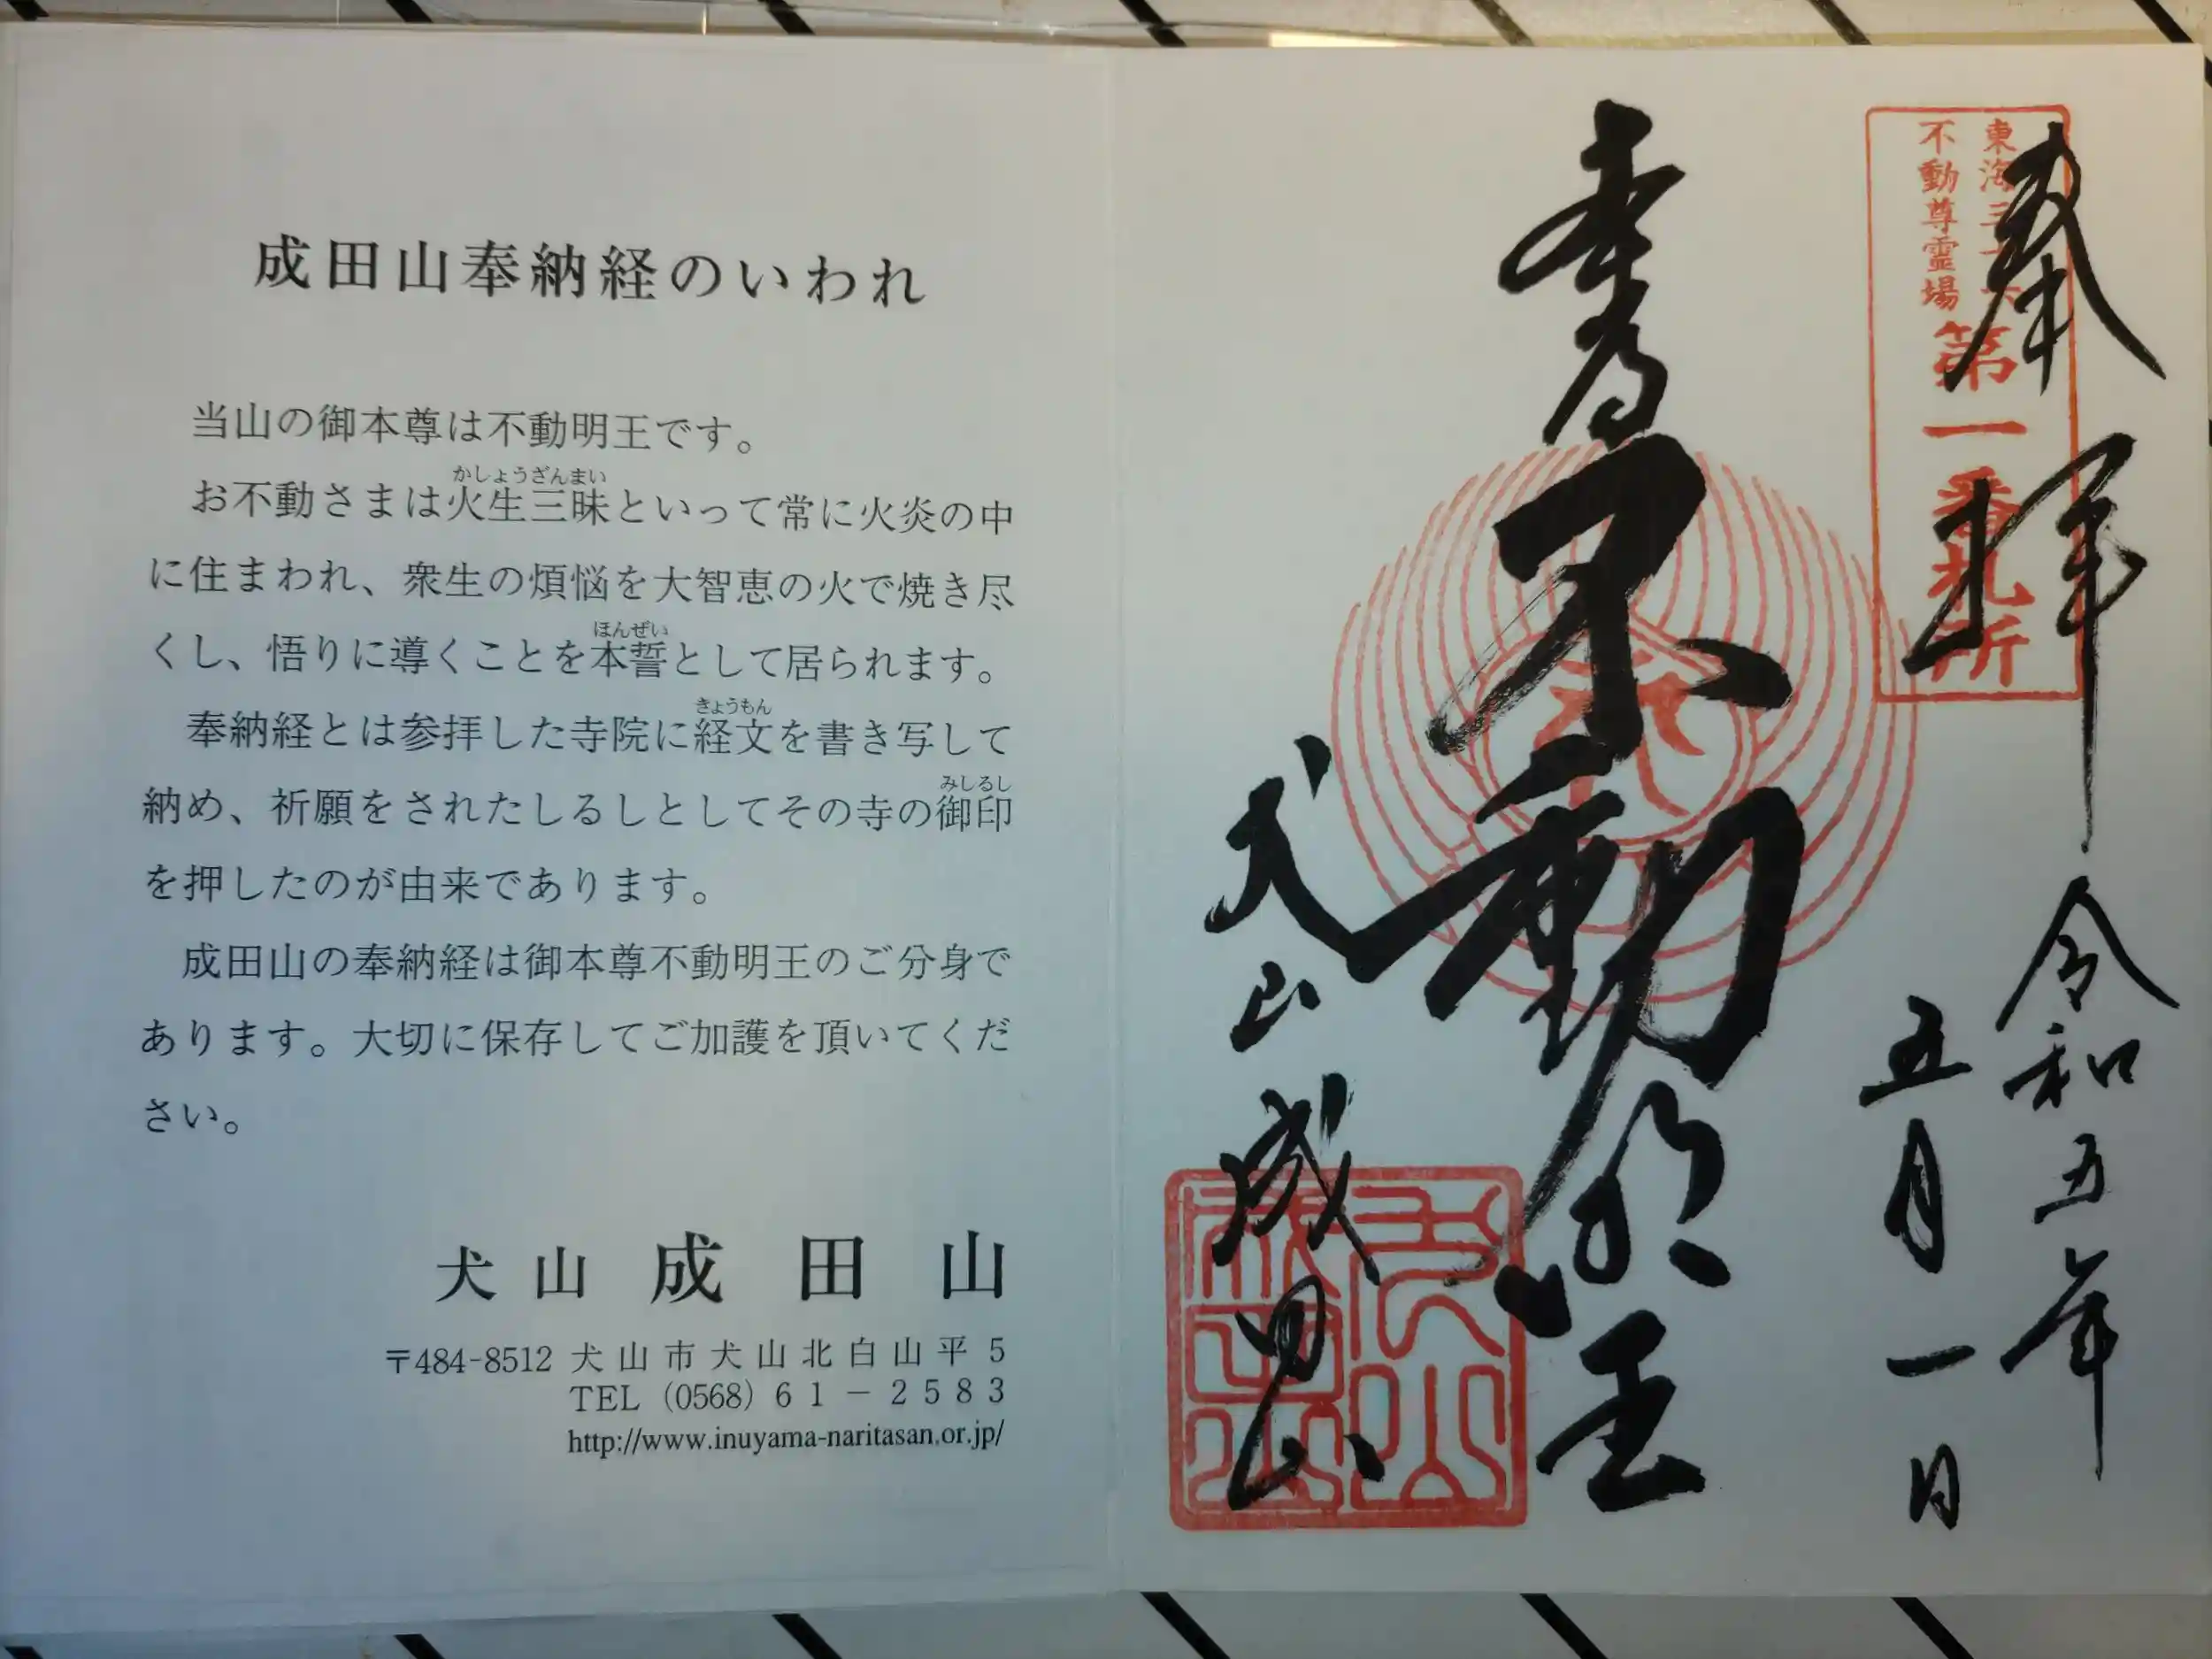 成田山奉納経のいわれ
当山の御本尊は不動明王です。
かしょうざんまい
お不動さまは火生三昧といって常に火炎の中
に住まわれ、衆生の煩悩を大智恵の火で焼き尽
ほんぜい
くし、悟りに導くことを本誓として居られます。
きょうもん
奉納経とは参拝した寺院に経文を書き写して
みしるし
納め、祈願をされたしるしとしてその寺の御印
を押したのが由来であります。
成田山の奉納経は御本尊不動明王のご分身で
あります。大切に保存してご加護を頂いてくだ
さい。
犬山 成田山
〒484-8512 犬山市犬山北白山平5
TEL (0568) 61-2583
http://www.inuyama-naritasan.or.jp/
奉拝 令和五年
五月一日
東海三十六
不動尊霊場
第一番札所
不動明王
犬山成田山